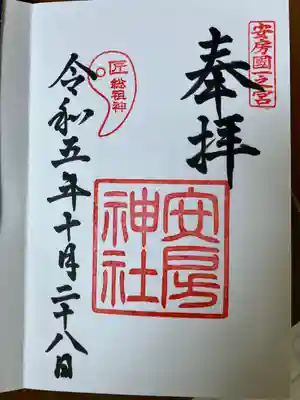 安房國一之宮
奉拝
安房神社
匠 総祖神
令和五年十月二十八日